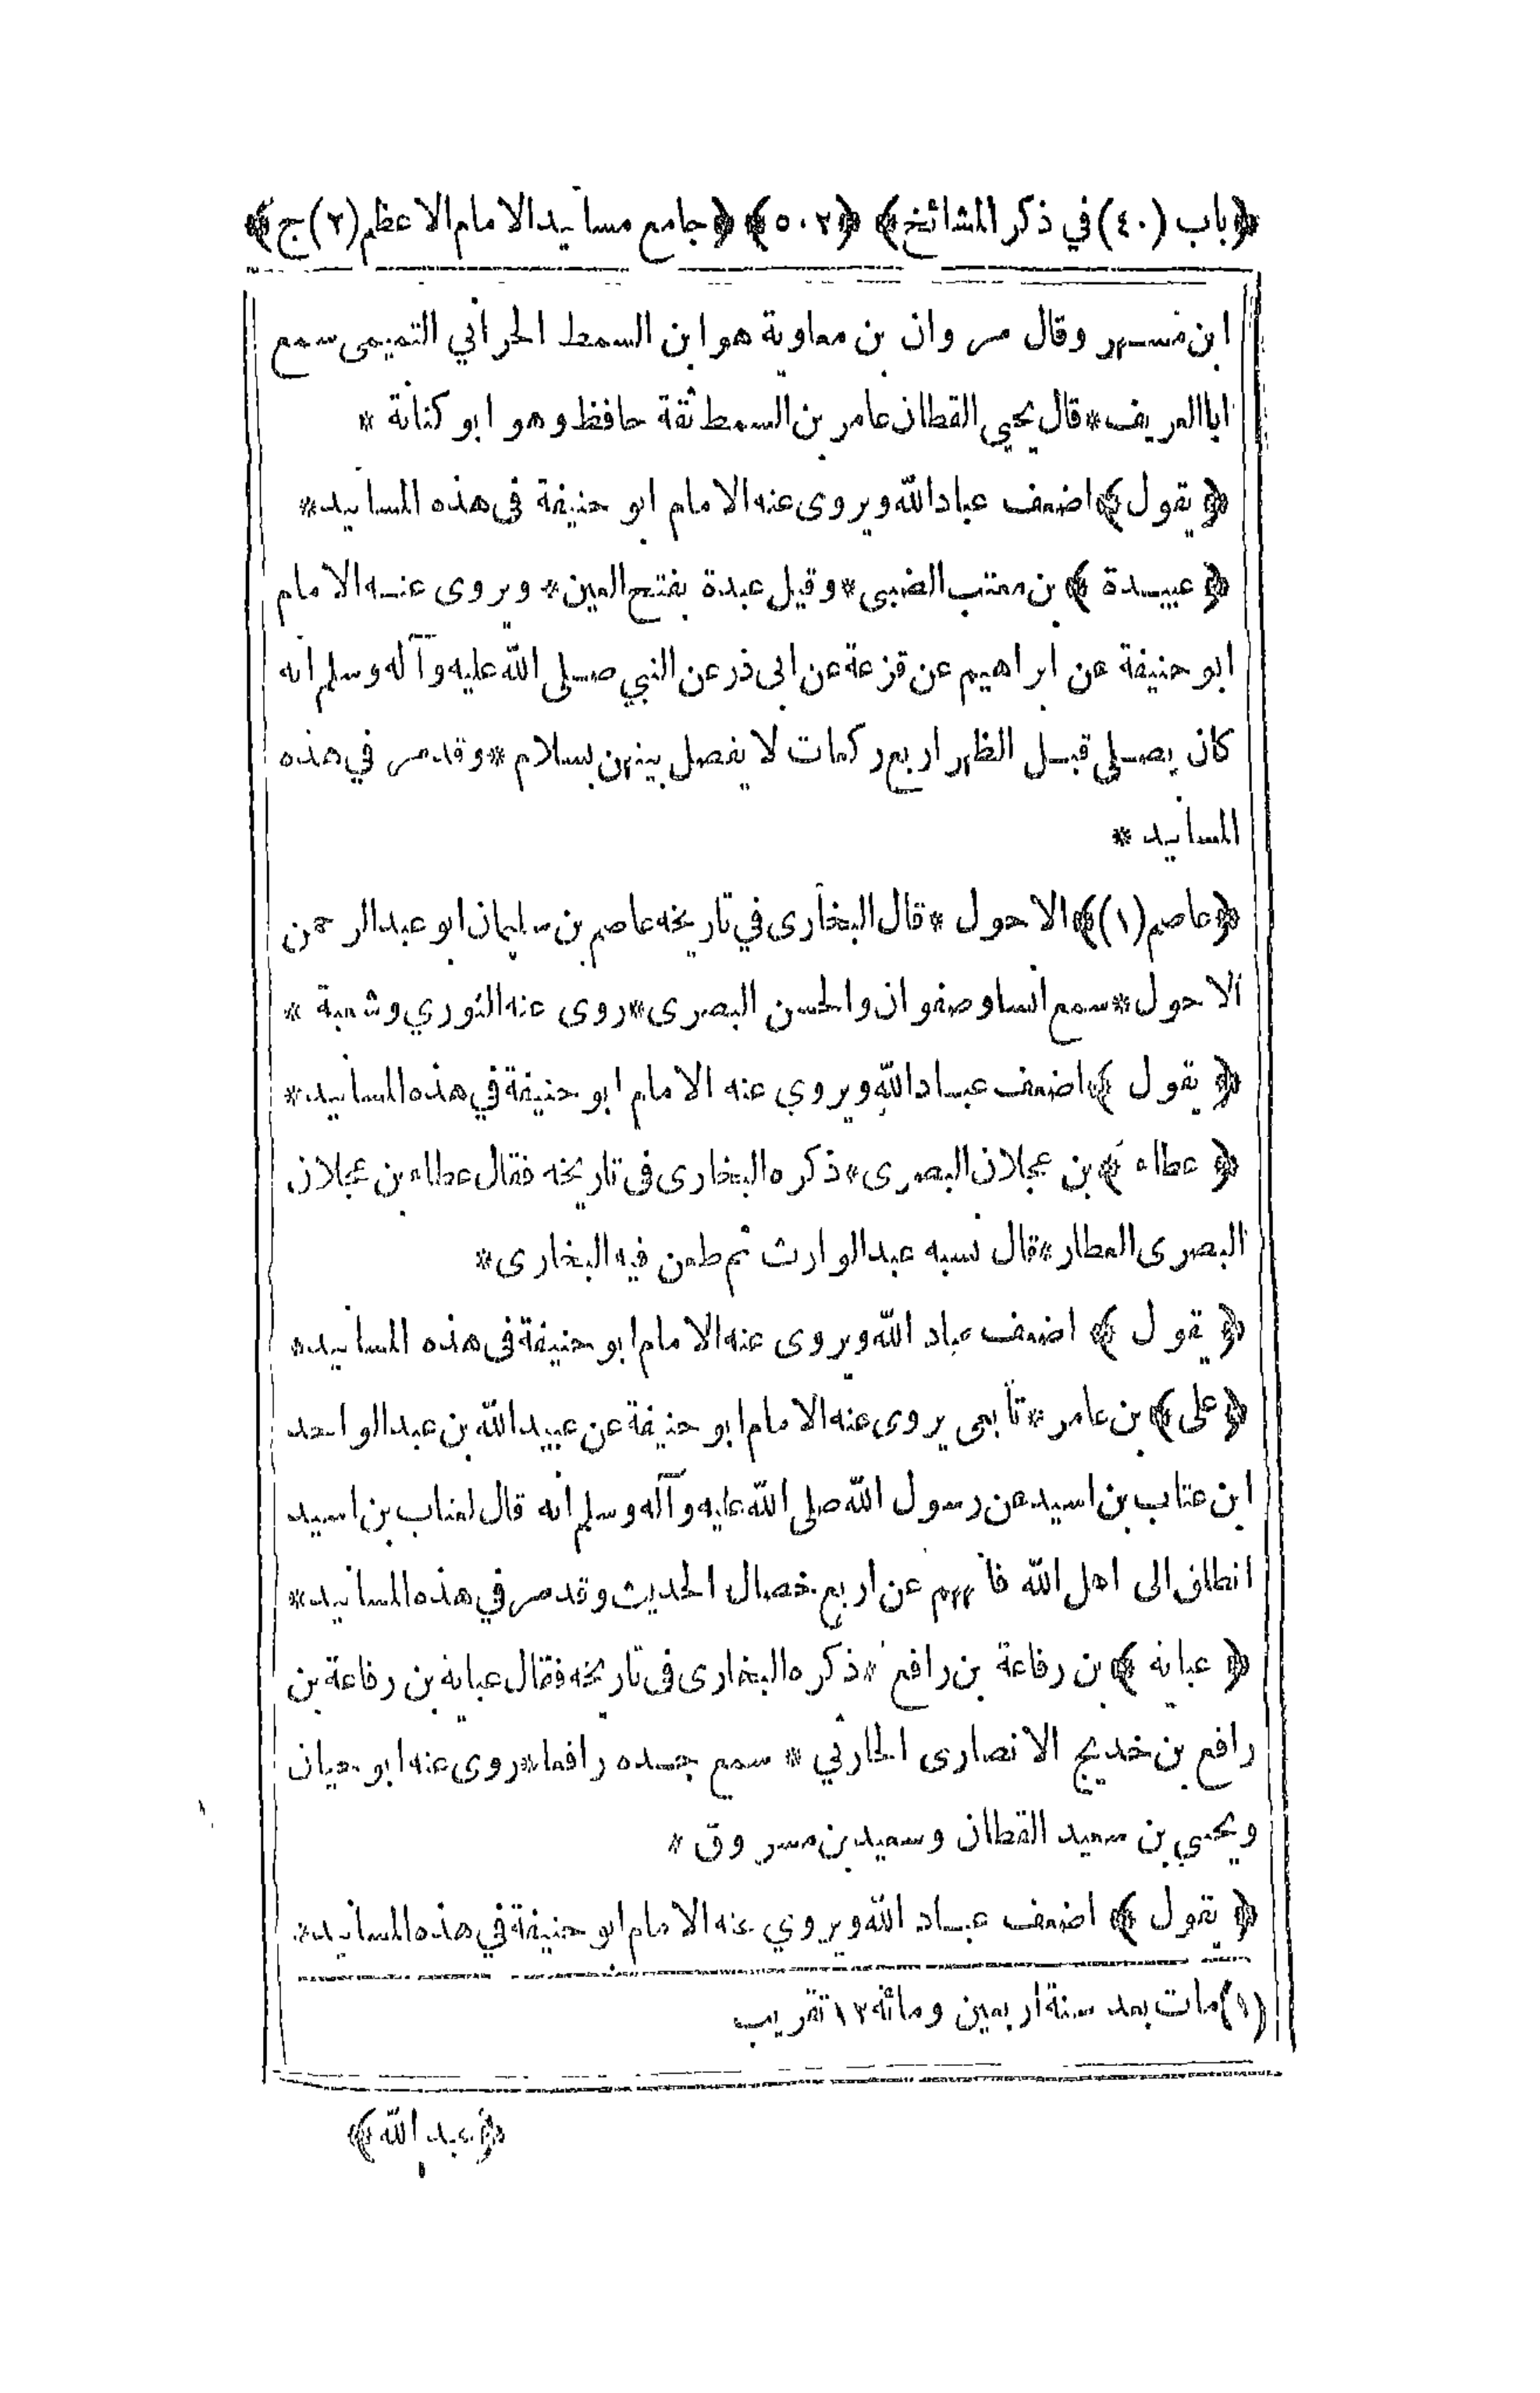 ﴿باب (٤٠) في ذكر المشائخ﴾ ﴿٥٠٢﴾ ﴿جامع مسانيد الامام الاعظم (٢) ج﴾
ابن مسهر وقال مروان بن معاوية هو ابن السمط الحراني التميمى سمع
ابا العريف * قال يحيى القطان عامر بن السمط ثقة حافظ وهو ابو كنانة *
﴿يقول﴾ اضعف عباد الله ويروى عنه الامام ابو حنيفة فى هذه المسانيد *
﴿عبيدة﴾ بن معتب الضبى * وقيل عبدة بفتح العين * ويروى عنه الامام
ابو حنيفة عن ابراهيم عن قزعة عن ابى ذر عن النبي صلى الله عليه وآله وسلم انه
كان يصلى قبل الظهر اربع ركعات لا يفصل بينهن بسلام * وقد مر في هذه
المسانيد *
﴿عاصم (١)﴾ الاحول * قال البخارى في تاريخه عاصم بن سليمان ابو عبد الرحمن
الاحول * سمع انسا وصفوان والحسن البصرى * روى عنه الثوري وشعبة *
﴿يقول﴾ اضعف عباد الله ويروي عنه الامام ابو حنيفة في هذه المسانيد *
﴿عطاء﴾ بن عجلان البصرى * ذكره البخارى فى تاريخه فقال عطاء بن عجلان
البصرى العطار * قال نسبه عبد الوارث ثم طعن فيه البخارى *
﴿يقول﴾ اضعف عباد الله ويروى عنه الامام ابو حنيفة فى هذه المسانيد *
﴿على﴾ بن عامر * تابعى يروى عنه الامام ابو حنيفة عن عبيد الله بن عبد الواحد
ابن عتاب بن اسيد عن رسول الله صلى الله عليه وآله وسلم انه قال لعتاب بن اسيد
انطلق الى اهل الله فانههم عن اربع خصال الحديث وقد مر في هذه المسانيد *
﴿عباية﴾ بن رفاعة بن رافع * ذكره البخارى فى تاريخه فقال عباية بن رفاعة بن
رافع بن خديج الانصارى الحارثي * سمع جده رافعا * روى عنه ابو حيان
ويحيى بن سعيد القطان وسعيد بن مسروق *
﴿يقول﴾ اضعف عباد الله ويروي عنه الامام ابو حنيفة في هذه المسانيد *
(١) مات بعد سنة اربعين ومائة ١٢ تقريب
﴿عبد الله﴾